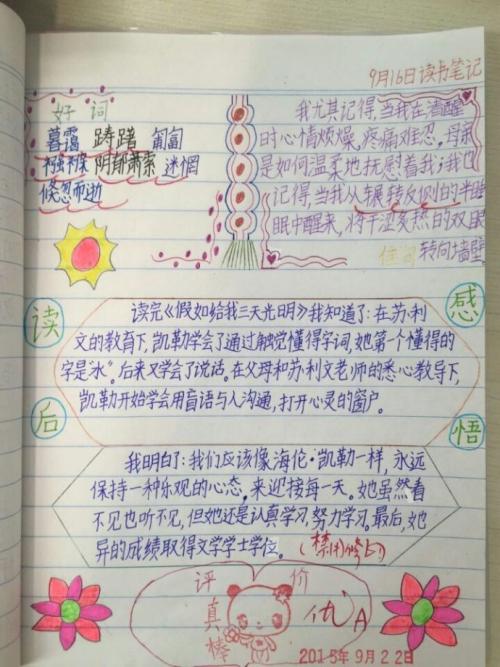 9月16日读书笔记
好词
暮霭 踌躇 匍匐
阴郁萧索 迷惘
倏忽而逝
我尤其记得,当我在清醒
时心情烦燥,疼痛难忍。母亲
是如何温柔地抚慰着我;我也
记得,当我从辗转反侧的半睡
眠中醒来,将干涩炙热的双眼
转向墙壁
佳词
读后
感悟
读完《假如给我三天光明》我知道了:在苏·利
文的教育下,凯勒学会了通过触觉懂得字词,她第一个懂得的
字是“水”。后来又学会了说话。在父母和苏·利文老师的悉心教导下,
凯勒开始学会用盲语与人沟通,打开心灵的窗户。
我明白了:我们应该像海伦·凯勒一样,永远
保持一种乐观的心态,来迎接每一天。她虽然看
不见也听不见,但她还是认真学习,努力学习。最后,她
异的成绩取得文学学士学位。
评价
真棒
优A
2015年9月22日